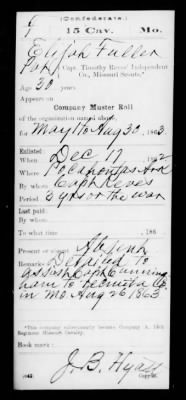 (Confederate.)
F 15 Cav. Mo.
Elijah Fuller
Pvt, Capt. Timothy Reves' Independent
Co., Missouri Scouts.*
Age 30 years.
Appears on
Company Muster Roll
of the organization named above,
for May 1 to Aug 30, 1863
Enlisted:
When Dec 17, 1862
Where Pocahontas Ark
By whom Capt Reves
Period 3 yrs or the war
Last paid:
By whom
To what time , 186
Present or absent Absent
Remarks: Detailed to
assist Capt Cunning
ham to recruit a Co
in Mo Aug 26 1863
*This company subsequently became Company A, 15th
Regiment Missouri Cavalry.
Book mark:
J. B. Hyatt
(642) Copyist.